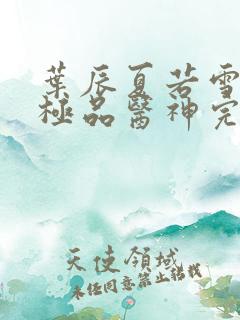 葉辰夏若雪
極品醫神完
天使領域
未經同意禁止轉載